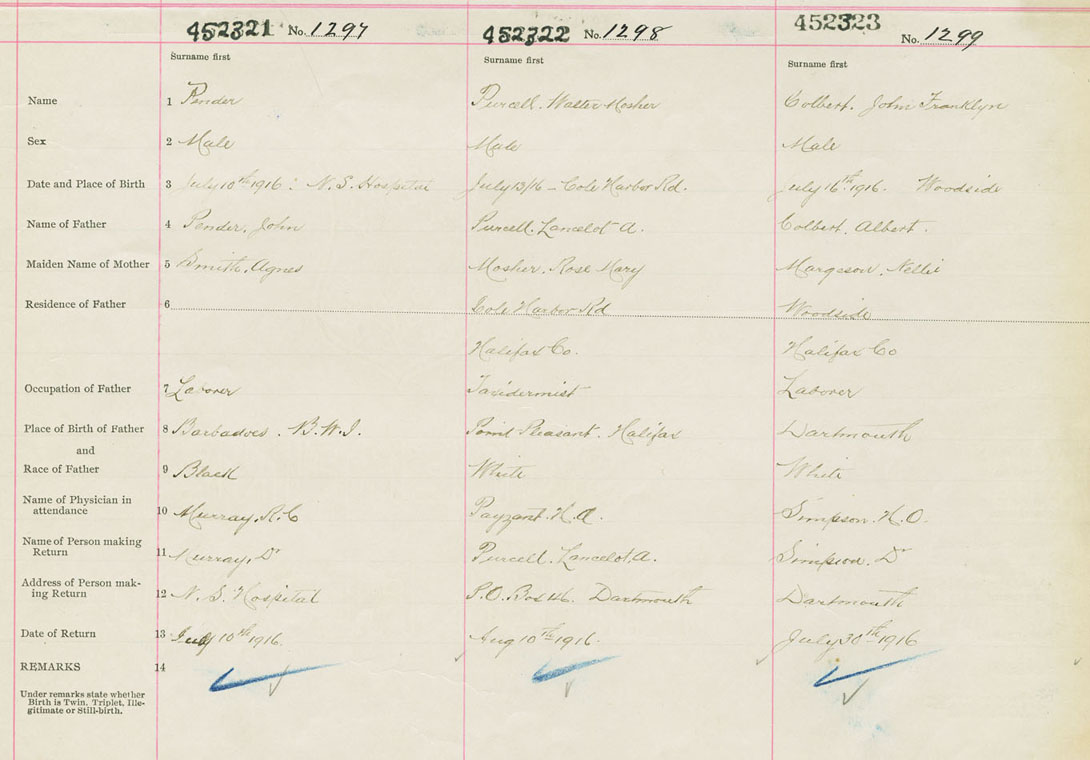 452321 No. 1297 452322 No. 1298 452323 No. 1299
Surname first Surname first Surname first
Name 1 Pender Purcell. Walter Mosher Colbert. John Franklyn
Sex 2 Male Male Male
Date and Place of Birth 3 July 10th 1916 : N.S. Hospital July 13/16 - Cole Harbor Rd. July 16th 1916. Woodside
Name of Father 4 Pender, John Purcell. Lancelot A. Colbert. Albert.
Maiden Name of Mother 5 Smith, Agnes Mosher. Rose Mary Nellie
Residence of Father 6 Cole Harbor Rd Woodside
Halifax Co. Halifax Co
Occupation of Father 7 Laborer Taxidermist Laborer
Place of Birth of Father 8 Barbadoes. B.W.I. Point Pleasant. Halifax Dartmouth
and
Race of Father 9 Black White White
Name of Physician in
attendance 10 Murray, R.C Payzant. H.A. Simpson. H.O.
Name of Person making
Return 11 Murray, Dr Purcell. Lancelot. A. Simpson. Dr
Address of Person mak-
ing Return 12 N.S. Hospital P.O. Box Dartmouth Dartmouth
Date of Return 13 10th 1916. Aug 10th 1916. July 30th 1916
REMARKS 14
Under remarks state whether
Birth is Twin, Triplet, Ille-
gitimate or Still-birth.